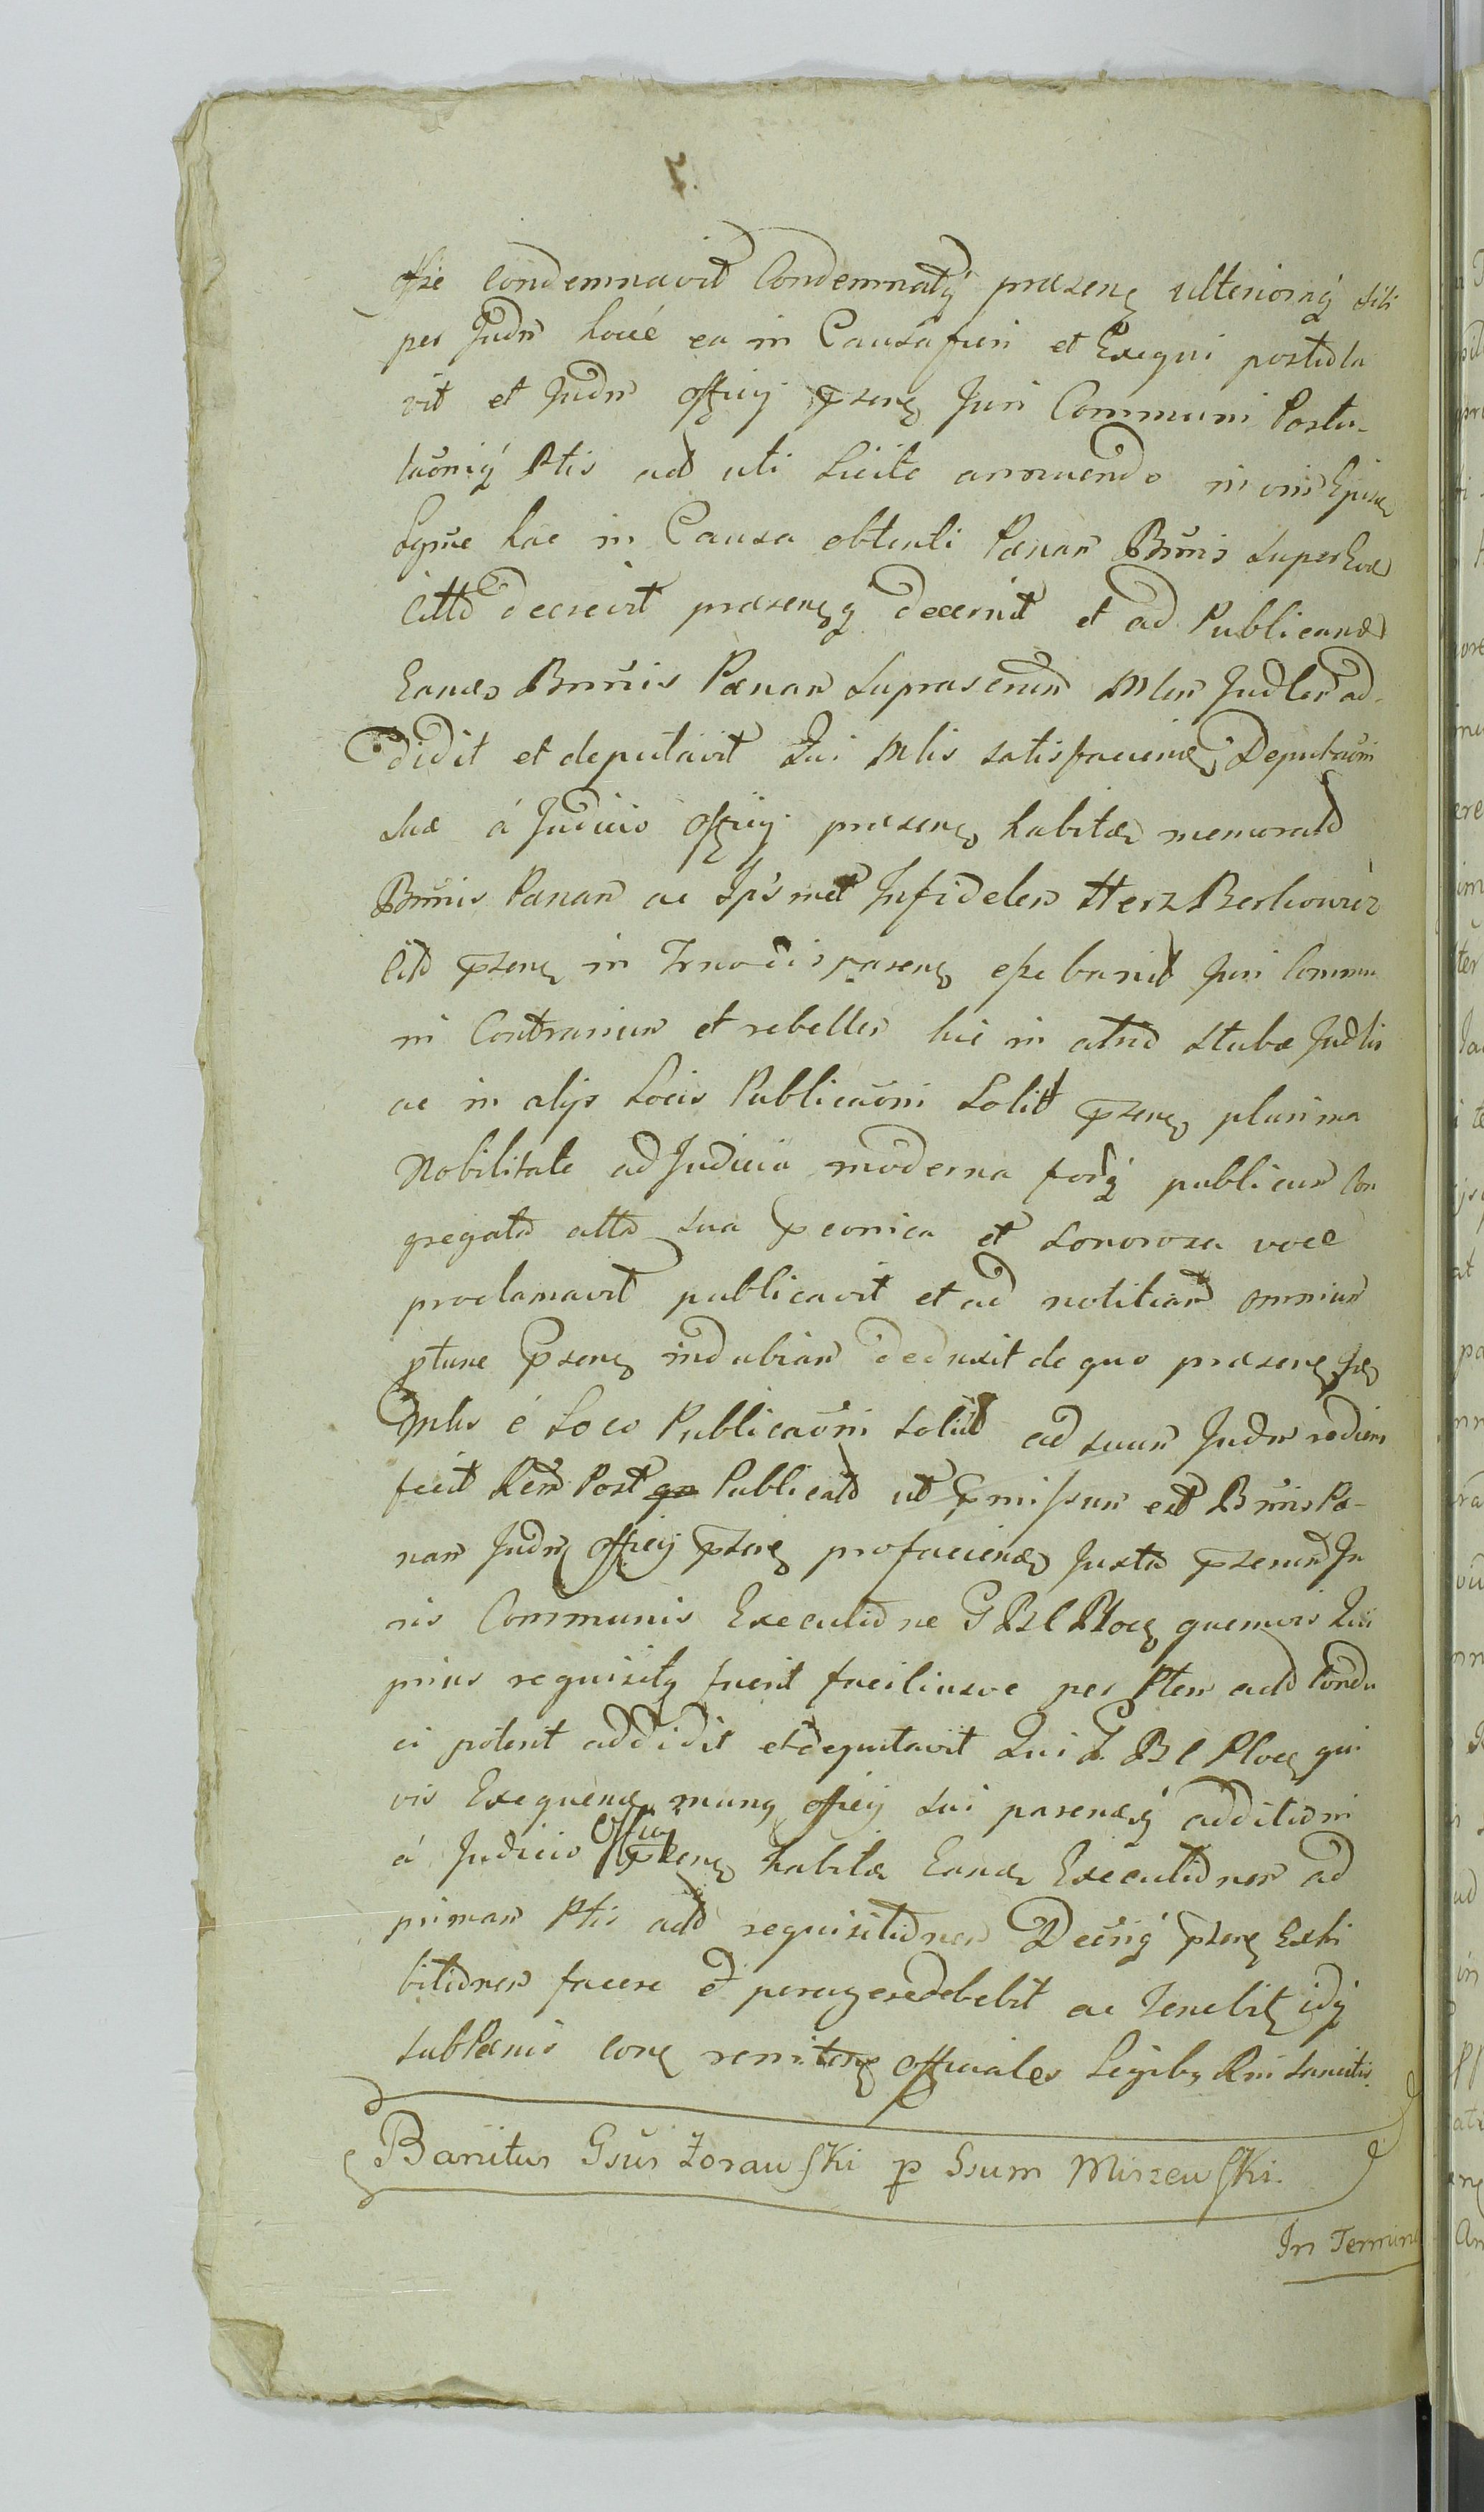 7.
esse Condemnavit Condemnatq praesens ulteriorīq sibi
per Judm hocce ea in Causa fieri et Exequi postula
vit et Judm officij pzens Juri Communi Postu-
laōniq Ptis act uti Licite annuendo in
hac in Causa obtenti Paenam Bnnis super
Cittto decrevit praesensq decernit et ad Publicand
Eand Bnnis Paenam suprascrtum Mlem Judlem ad-
didit et deputavit Qui Mlis satisfaciend Deputaōni
suae á Judicio officij praesens habitae memorato
Bnnis Paenam ac Ipsmet Infidelem Herz Berkowicz
Citt pzens in Trno parens esse banit Juri Commu
ni Contrarium et rebellem hic in atrio stubae Judlis
ac in alijs Locis Publicaōni Solit pzens plurima
Nobilitate ad Judicia moderna forīq publicum Con
gregata alta sua pconica et sonorosa voce
proclamavit publicavit et ad notitiam omnium
ptunc pzens indubiam deduxit de quo praesens
Mlis é Loco Publicaōni solito ad suum Judm rediens
fecit Relm Post Publicato ut pmissum est Bnnis Pae-
nam Judm officij pzens pro faciend Juxta pzcrtum Ju
ris Communis Executione G BSC Ploc quemvis Qui
prius requisitq fuerit faciliusve per Ptem act Condu
ci poterit addidit et deputavit Qui G B C Ploc qui
vis Exequend munq officij sui parendq additioni
á Judicio Officij pzens habitae Eand Executionem ad
primam Ptis act requisitionem Decrīq pzens Exhi
bitionem facere et peragere debebit ac Tenebit idq
sub Paenis conq renitens officiales Legibq Rni sancitis.
Banitus Gsus Zorawski p Gsum Mirzewski.
In Termino